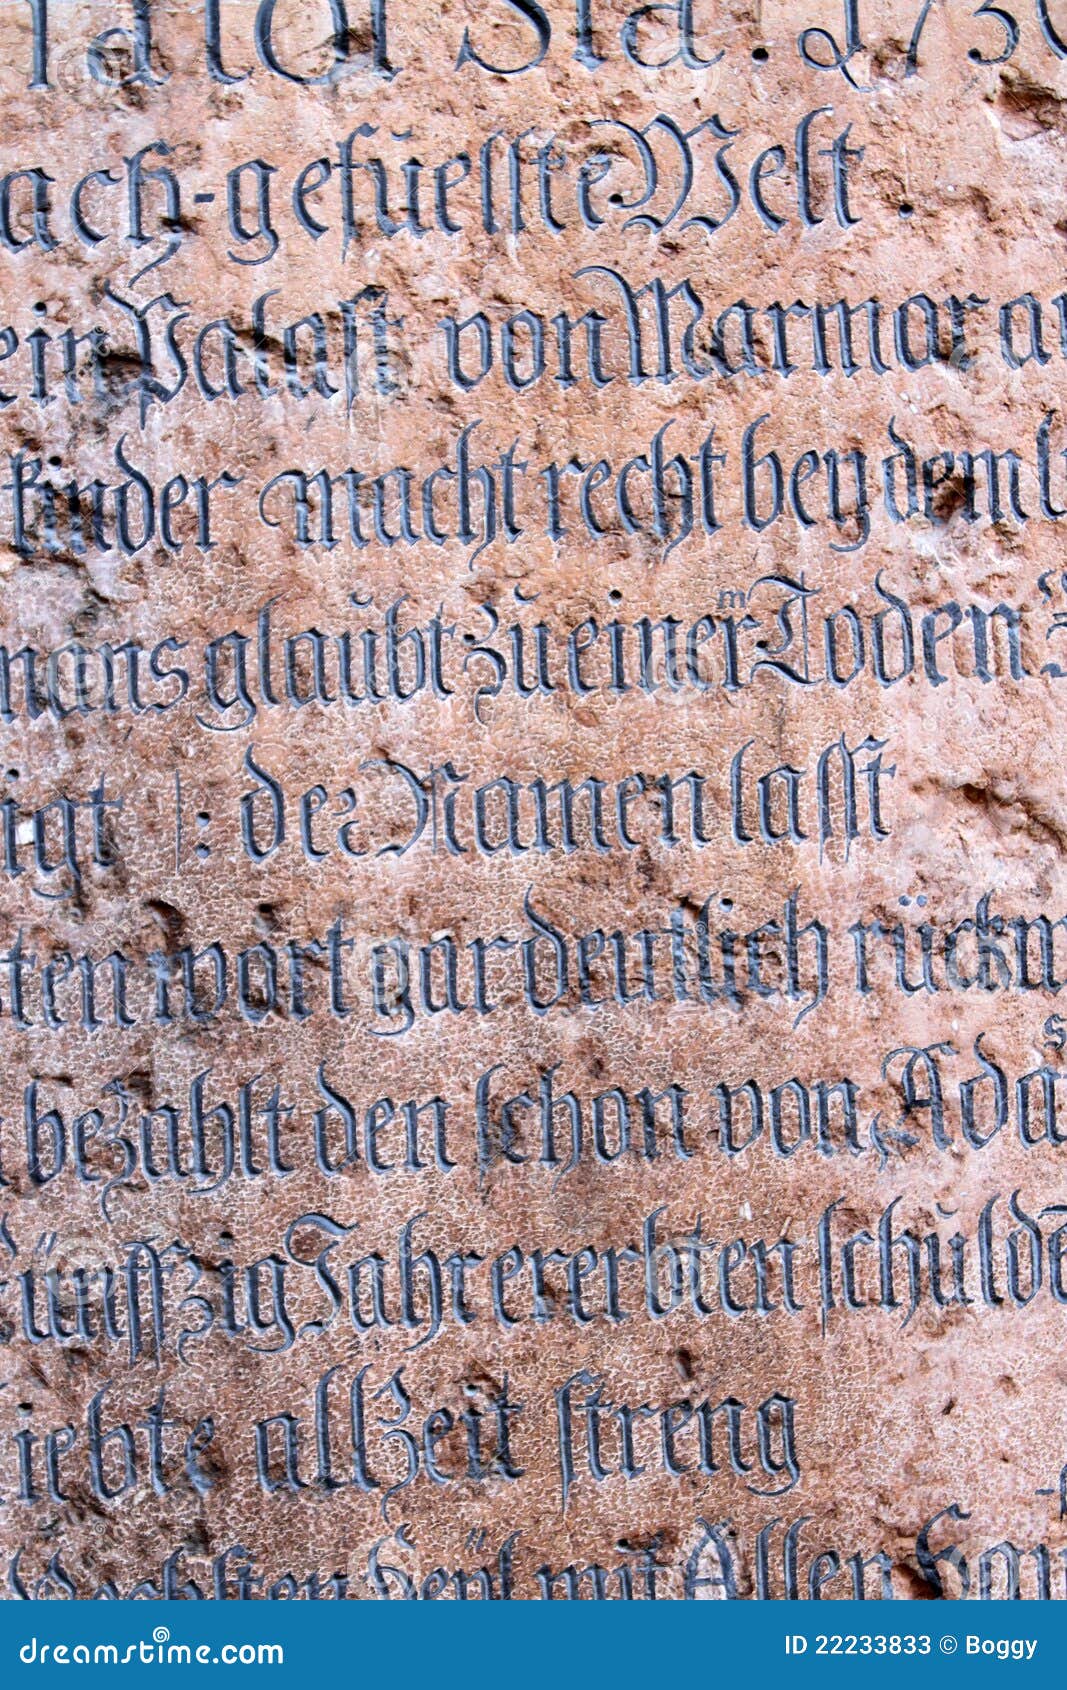 Sta: 173
ach-gefüelste Welt.
ein Palast von Marmor an
kinder macht recht bey dem
mans glaubt zu einer m Toden
igt |: dez Namen lasst
ten wort gar deutlich rück
bezahlt den schon von Ada s
fünffzig Jahr ererbten schuld
liebte allzeit streng
mit Allen
dreamstime.com
ID 22233833 © Boggy